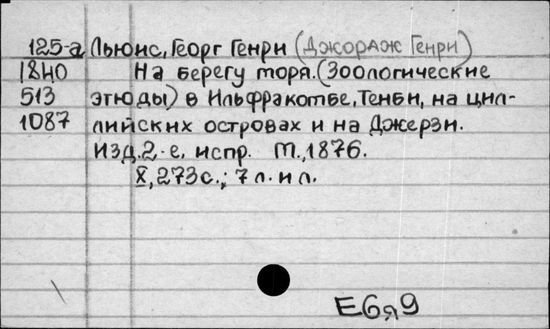 125-а Льюис, Георг Генри (Джораж Генри)
1840 На берегу моря. (Зоологические
513 этюды) в Ильфракомбе, Тенби, на цил-
1087 лийских островах и на Джерзи.
Изд. 2-е, испр. М., 1876.
X, 273 с.; 7 л. ил.
Е6я9